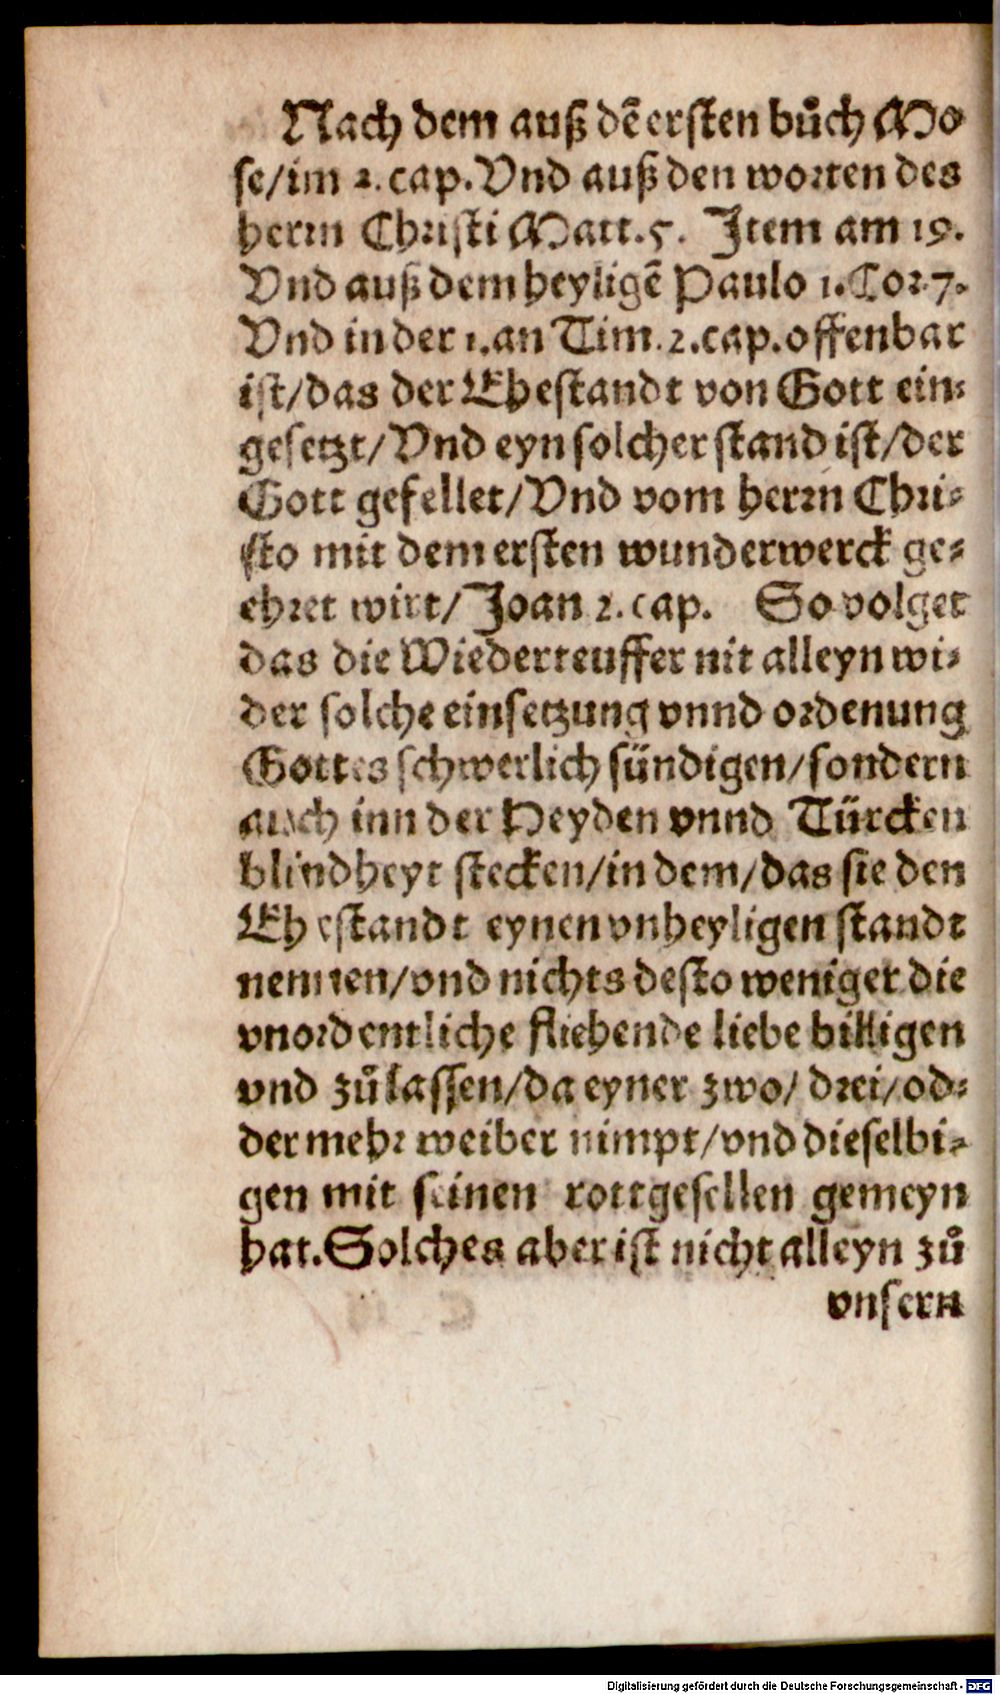 Nach dem auß dē ersten bůch Mo
se/im 2. cap. Vnd auß den worten des
herrn Christi Matt. 5. Item am 19.
Vnd auß dem heyligē Paulo 1. Cor. 7.
Vnd in der 1. an Tim. 2. cap. offenbar
ist/das der Ehestandt von Gott ein⸗
gesetzt/Vnd eyn solcher stand ist/der
Gott gefellet/Vnd vom herrn Chri⸗
sto mit dem ersten wunderwerck ge⸗
ehret wirt/Joan 2. cap. So volget
das die Wiederteuffer nit alleyn wi⸗
der solche einsetzung vnnd ordenung
Gottes schwerlich sündigen/sondern
auch inn der Heyden vnnd Türcken
blindheyt stecken/in dem/das sie den
Ehestandt eynen vnheyligen standt
nennen/vnd nichts desto weniger die
vnordentliche fliehende liebe billigen
vnd zůlassen/da eyner zwo/drei/od⸗
der mehr weiber nimpt/vnd dieselbi⸗
gen mit seinen rottgesellen gemeyn
hat. Solches aber ist nicht alleyn zů
vnsern
Digitalisierung gefördert durch die Deutsche Forschungsgemeinschaft - DFG